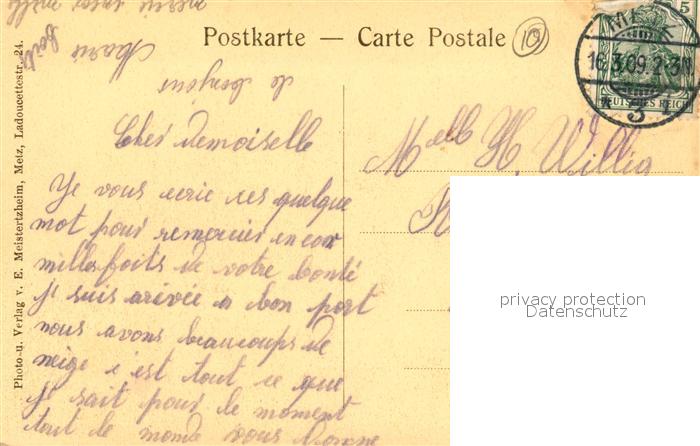 Postkarte — Carte Postale
10
5
16.3.09.2-3N
DEUTSCHES REICH
* 3 1
Photo- u. Verlag v. E. Meistertzheim, Metz, Ladoucettestr. 24.
Marie
de
Cher demoiselle
Je vous ecrie ces quelque
mot pour remercier encor
milles foits de votre bonté
je suis arivée a bon port
nous avons beaucoups de
neige c'est tout ce que
je sait pour le moment
tout le monde vous donne
Melle H. Willig
privacy protection
Datenschutz